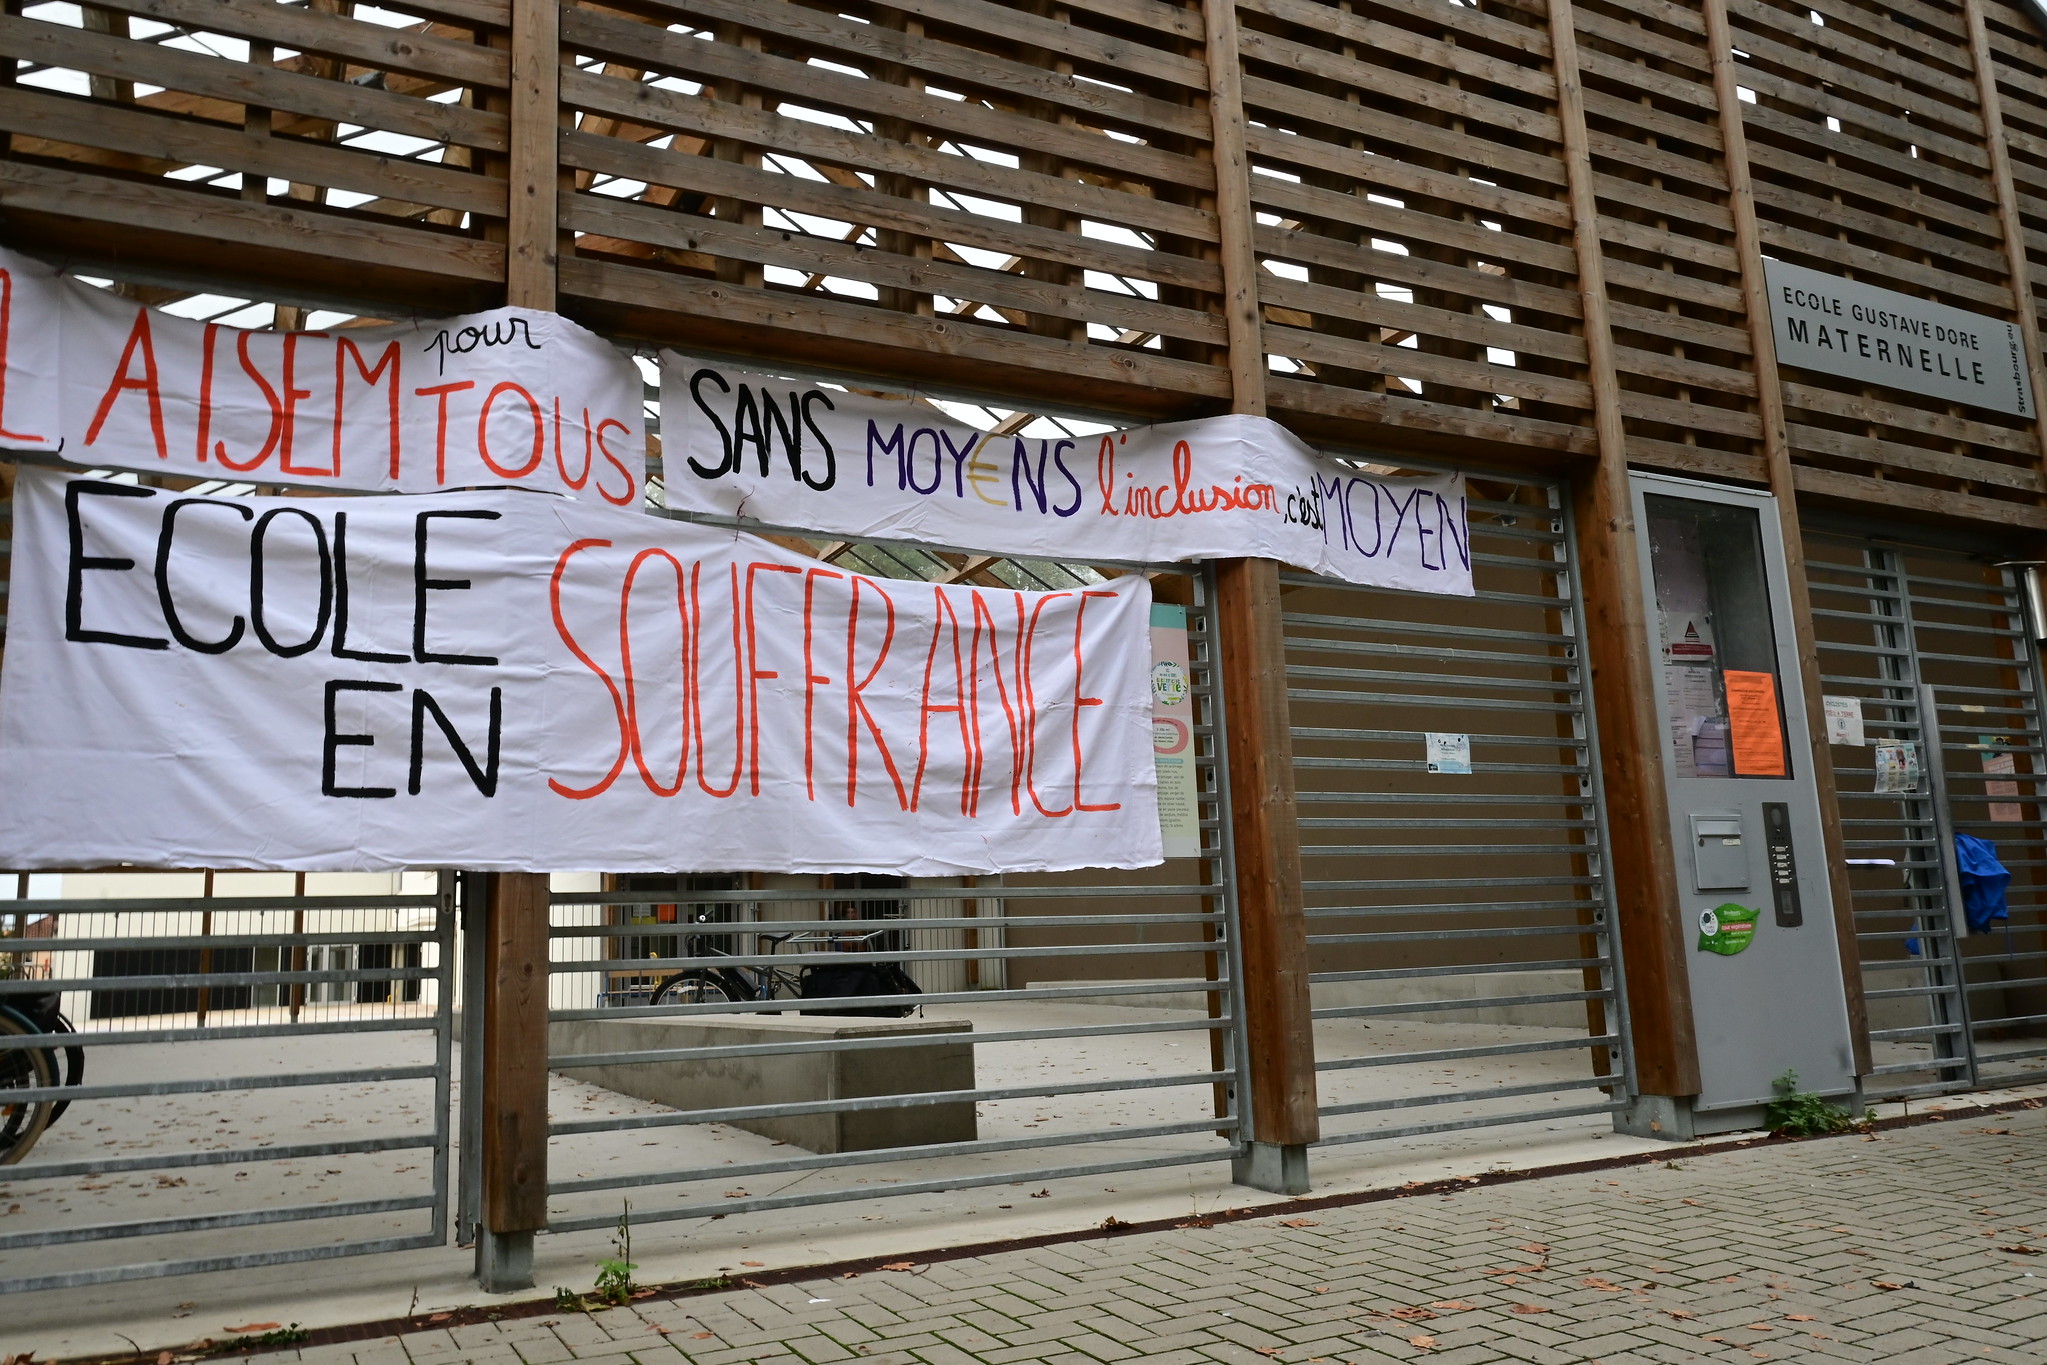 L'AISEM pour TOUS
SANS MOY€NS l'inclusion, c'est MOYEN
ECOLE
EN
SOUFFRANCE
ECOLE GUSTAVE DORE
MATERNELLE
Strasbourg.eu